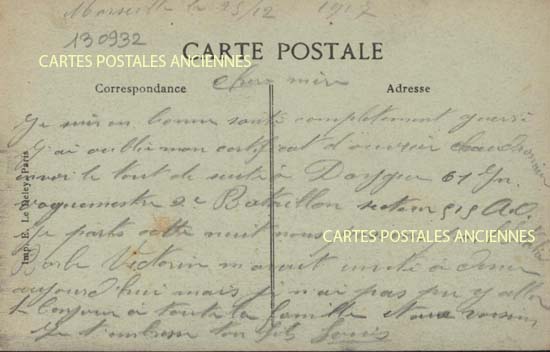 Marseille le 25/12 1917
130932
CARTE POSTALE
CARTES POSTALES ANCIENNES
chère mère
Correspondance
Adresse
Je suis en bonne santé complètement guéri
j'ai oublié mon certificat d'ouvrier
le tout de suite à 61
vaguemestre 2e Bataillon secteur 519 A.O.
Je parts cette nuit nous
CARTES POSTALES ANCIENNES
Victorin m'avait invité à
aujourd'hui mais je n'ai pas pu y aller
Bonjour à toute la famille et aux voisins
Je t'embrasse ton fils Louis
Imp. E. Le Deley, Paris